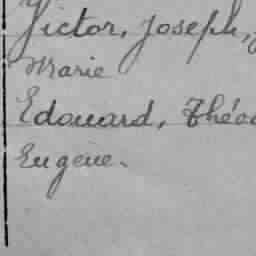 Victor, Joseph,
Marie
Edouard, Théo
Eugène.